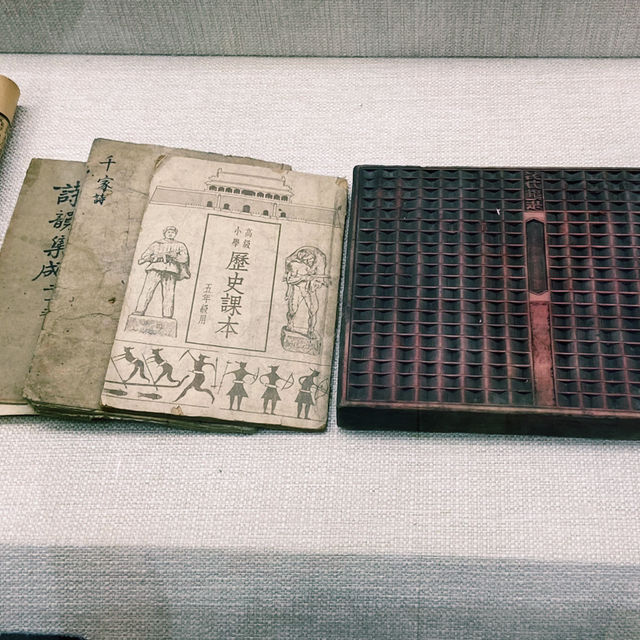 詩韻集成
千家詩
高級
小學
歷史課本
五年級用